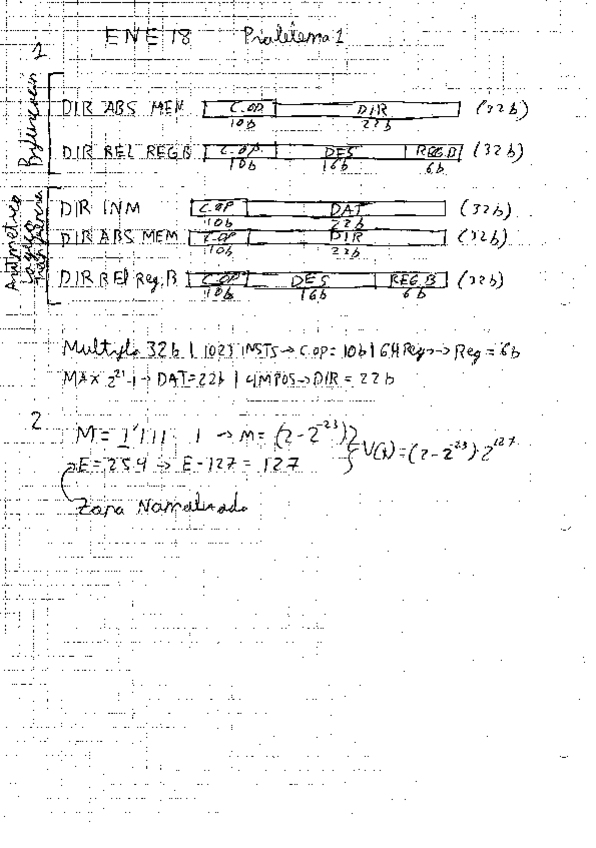 ENE 18 Problema 1
1
Bifurcación
DIR ABS MEM C.OP DIR (32b)
10b 22b
DIR REL REG B C.OP. DES REG.B (32b)
10b 16b 6b
Aritmético
DIR INM C.OP DAT (32b)
10b 22b
DIR ABS MEM C.OP DIR (32b)
10b 22b
DIR REL Reg. B C.OP DES REG B (32b)
10b 16b 6b
Multiplo 32b | 1023 INSTS → C.OP = 10b | 64 Regs → Reg = 6b
MAX 2^21-1 → DAT=22b | 4MPOS → DIR = 22b
2
M = 1'111 1 → M = (2-2^-23)
E = 254 → E-127 = 127 } V(x) = (2-2^-23)·2^127
Zona Normalizada